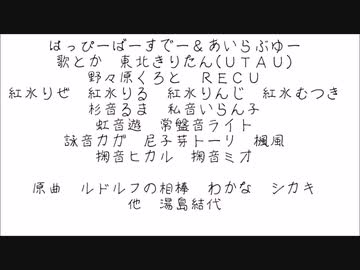 はっぴーばーすでー＆あいらぶゆー
歌とか　東北きりたん(UTAU)
野々原くろと　RECU
紅氷りぜ　紅氷りる　紅氷りんじ　紅氷むつき
杉音るま　私音いらん子
虹音遊　常盤音ライト
詠音カガ　尼子芽トーリ　楓風
掬音ヒカル　掬音ミオ
原曲　ルドルフの相棒　わかな　シカキ
他　湯島結代